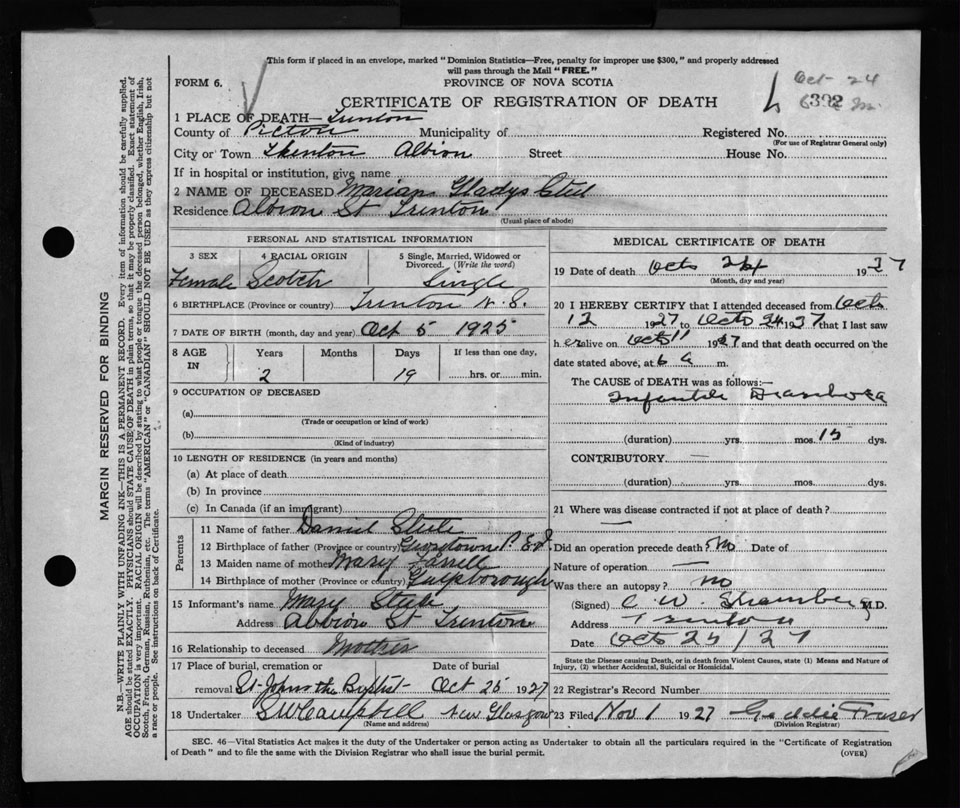 This form if placed in an envelope, marked "Dominion Statistics—Free, penalty for improper use $300," and properly addressed
will pass through the Mail "FREE."
FORM 6.
PROVINCE OF NOVA SCOTIA
Oct-24
6392
CERTIFICATE OF REGISTRATION OF DEATH
1 PLACE OF DEATH— Trenton
County of Pictou Municipality of Registered No.
(For use of Registrar General only)
City or Town Trenton Albion Street House No.
If in hospital or institution, give name
2 NAME OF DECEASED Marian Gladys Steel
Residence Albion St Trenton
(Usual place of abode)
PERSONAL AND STATISTICAL INFORMATION
3 SEX 4 RACIAL ORIGIN 5 Single, Married, Widowed or
Divorced. (Write the word)
Female Scotch Single
6 BIRTHPLACE (Province or country) Trenton N.S.
7 DATE OF BIRTH (month, day and year) Oct 5 1925
8 AGE IN Years Months Days If less than one day,
2 19 hrs. or min.
9 OCCUPATION OF DECEASED
(a)
(Trade or occupation or kind of work)
(b)
(Kind of industry)
10 LENGTH OF RESIDENCE (in years and months)
(a) At place of death
(b) In province
(c) In Canada (if an immigrant)
Parents
11 Name of father Daniel Steele
12 Birthplace of father (Province or country) Georgetown P.E.I.
13 Maiden name of mother Mary
14 Birthplace of mother (Province or country) Guysborough
15 Informant's name Mary Steele
Address Albion St Trenton
16 Relationship to deceased Mother
17 Place of burial, cremation or Date of burial
removal St-Johns the Baptist- Oct 25 1927
18 Undertaker S W Campbell New Glasgow
(Name and address)
MEDICAL CERTIFICATE OF DEATH
19 Date of death Octo 24 1927
(Month, day and year)
20 I HEREBY CERTIFY that I attended deceased from Octo
12 1927 to Octo 24 1927 that I last saw
her alive on Octo 11 1927 and that death occurred on the
date stated above, at 6 a m.
The CAUSE of DEATH was as follows:—
Infantile Diarrhoea
(duration) yrs. mos. 15 dys.
CONTRIBUTORY
(duration) yrs. mos. dys.
21 Where was disease contracted if not at place of death?
Did an operation precede death? No Date of
Nature of operation —
Was there an autopsy? no
(Signed) C. W. M.D.
Address Trenton
Date Octo 25/27
State the Disease causing Death, or in death from Violent Causes, state (1) Means and Nature of
Injury, (2) whether Accidental, Suicidal or Homicidal.
22 Registrar's Record Number
23 Filed Nov 1 1927 Fraser
(Division Registrar)
SEC. 46—Vital Statistics Act makes it the duty of the Undertaker or person acting as Undertaker to obtain all the particulars required in the "Certificate of Registration
of Death" and to file the same with the Division Registrar who shall issue the burial permit.
(OVER)
MARGIN RESERVED FOR BINDING
N.B.—WRITE PLAINLY WITH UNFADING INK—THIS IS A PERMANENT RECORD. Every item of information should be carefully supplied.
AGE should be stated EXACTLY. PHYSICIANS should STATE CAUSE OF DEATH in plain terms, so that it may be properly classified. Exact statement of
OCCUPATION is very important. RACIAL ORIGIN will be described by stating to what people or tongue the deceased person belonged, whether English, Irish,
Scotch, French, German, Russian, Ruthenian, etc. The terms "AMERICAN" or "CANADIAN" SHOULD NOT BE USED as they express citizenship but not
a race or people. See instructions on back of Certificate.